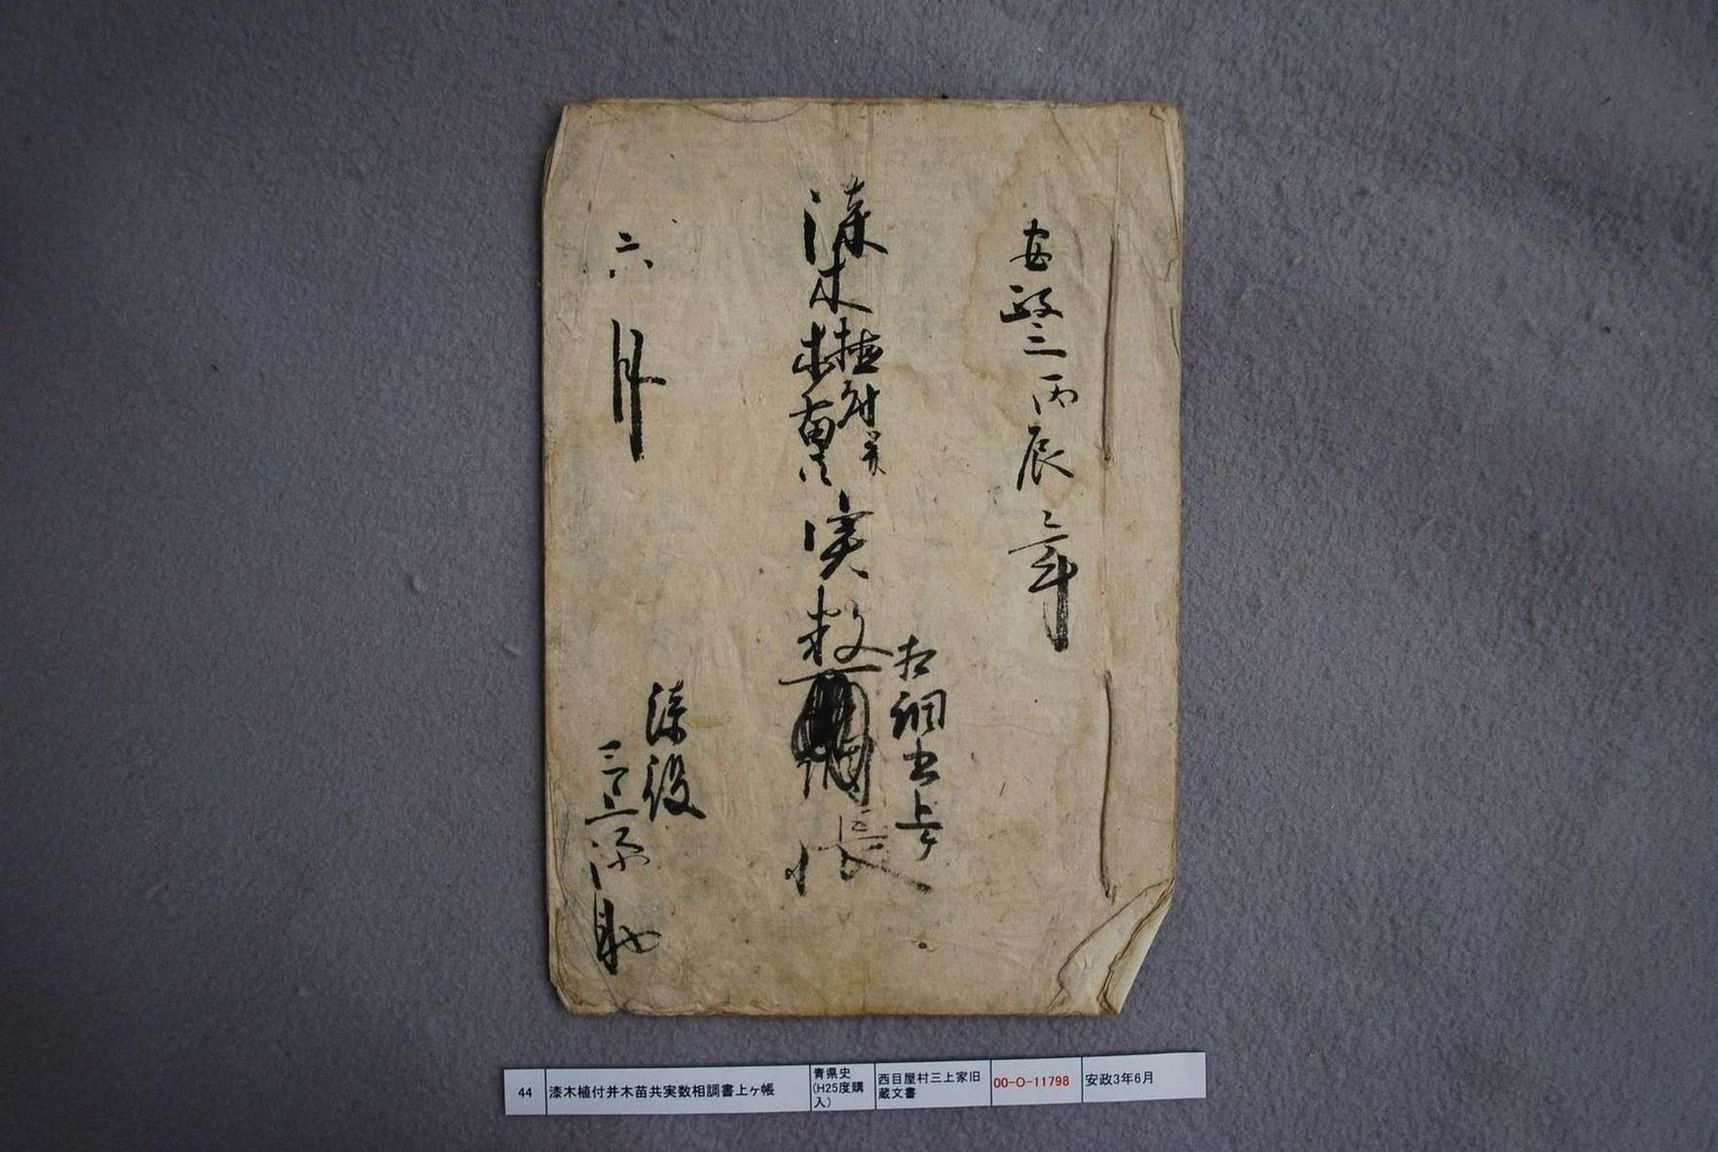 安政三丙辰年
漆木植付并
木苗共
実数
相調書上ケ
帳
六月
漆役
三上
助
44
漆木植付并木苗共実数相調書上ヶ帳
青県史
(H25度購
入)
西目屋村三上家旧
蔵文書
00-O-11798
安政3年6月